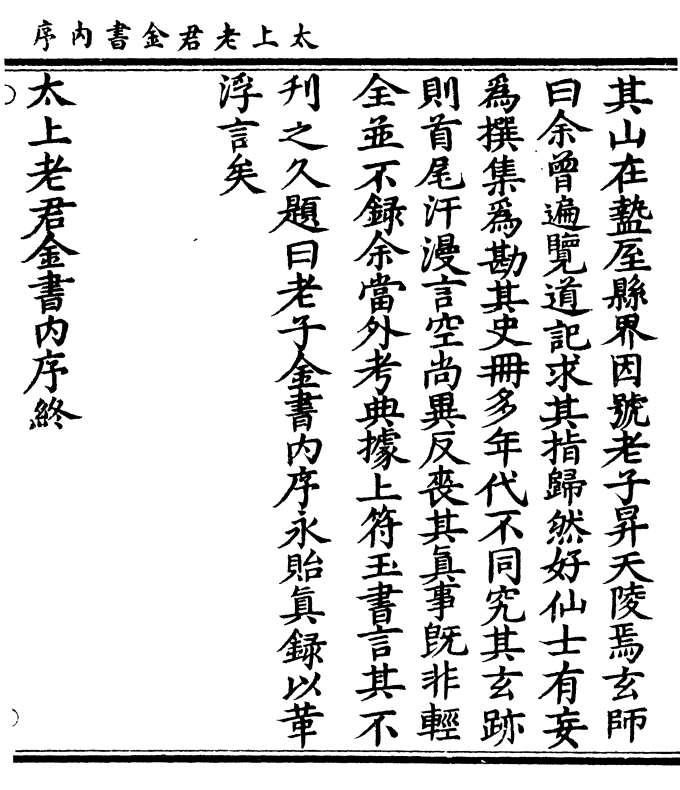 太上老君金書內序
其山在盩厔縣界因號老子昇天陵焉玄師
曰余曾遍覽道記求其指歸然好仙士有妄
爲撰集爲勘其史冊多年代不同究其玄跡
則首尾汗漫言空尚異反喪其眞事旣非輕
全並不録余當外考典據上符玉書言其不
刊之久題曰老子金書內序永貽眞録以革
浮言矣
太上老君金書內序終